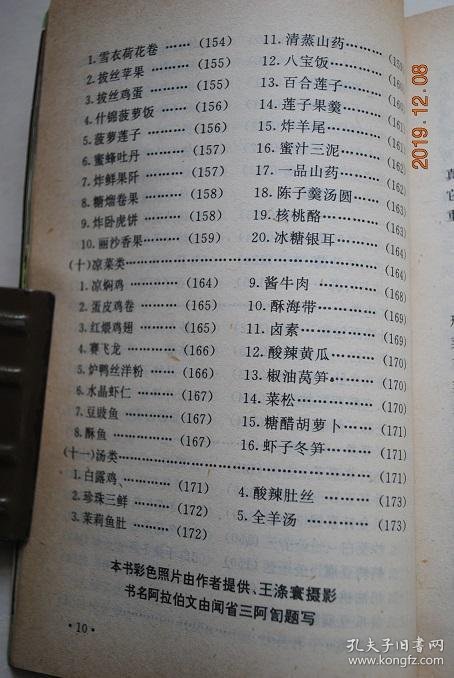 1.雪衣荷花卷 ……… (154)
2.拔丝苹果 ………… (155)
3.拔丝鸡蛋 ………… (155)
4.什锦菠萝饭 ……… (156)
5.菠萝莲子 ………… (156)
6.蜜蜂吐丹 ………… (157)
7.炸鲜果阡 ………… (157)
8.糖熘卷果 ………… (158)
9.炸卧虎饼 ………… (158)
10.丽沙香果 ……… (159)
11.清蒸山药 ………
12.八宝饭 …………
13.百合莲子 ………
14.莲子果羹 ………
15.炸羊尾 ………… (161)
16.蜜汁三泥 ……… (162)
17.一品山药 ……… (162)
18.陈子羹汤圆 …… (163)
19.核桃酪 ………… (163)
20.冰糖银耳 ……… (164)
(十)凉菜类 ………………………… (164)
1.凉焖鸡 ………… (164)
2.蛋皮鸡卷 ……… (165)
3.红煨鸡翅 ……… (165)
4.赛飞龙 ………… (166)
5.炉鸭丝洋粉 …… (166)
6.水晶虾仁 ……… (167)
7.豆豉鱼 ………… (167)
8.酥鱼 …………… (168)
9.酱牛肉 ………… (168)
10.酥海带 ………… (169)
11.卤素 …………… (169)
12.酸辣黄瓜 ……… (170)
13.椒油莴笋 ……… (170)
14.菜松 …………… (171)
15.糖醋胡萝卜 …… (171)
16.虾子冬笋 ……… (171)
(十一)汤类 ………………………… (171)
1.白露鸡 ………… (171)
2.珍珠三鲜 ……… (172)
3.茉莉鱼肚 ……… (172)
4.酸辣肚丝 ……… (173)
5.全羊汤 ………… (173)
本书彩色照片由作者提供、王涤寰摄影
书名阿拉伯文由闻省三阿訇题写
·10·
2019.12.08
孔夫子旧书网
www.kongfz.com